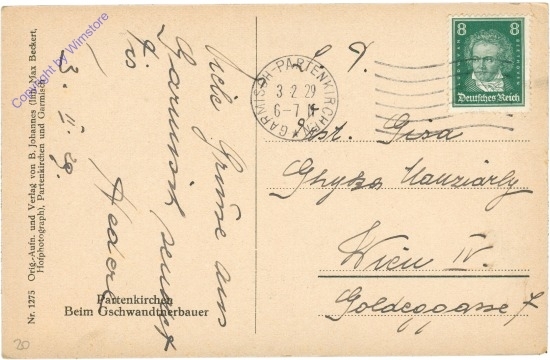 Copyright by Wimstore
Nr. 1275 Orig.-Aufn. und Verlag von B. Johannes (Inh. Max Beckert,
Hofphotograph), Partenkirchen und Garmisch.
Viele Grüsse aus
Garmisch sendet
3. II. 29.
Partenkirchen
Beim Gschwandtnerbauer
20
GARMISCH-PARTENKIRCHEN
3 2 29
6-7 N
8 8
LUDWIG VAN BEETHOVEN
Deutsches Reich
Gisa
Wien IV.
Goldeggasse 7